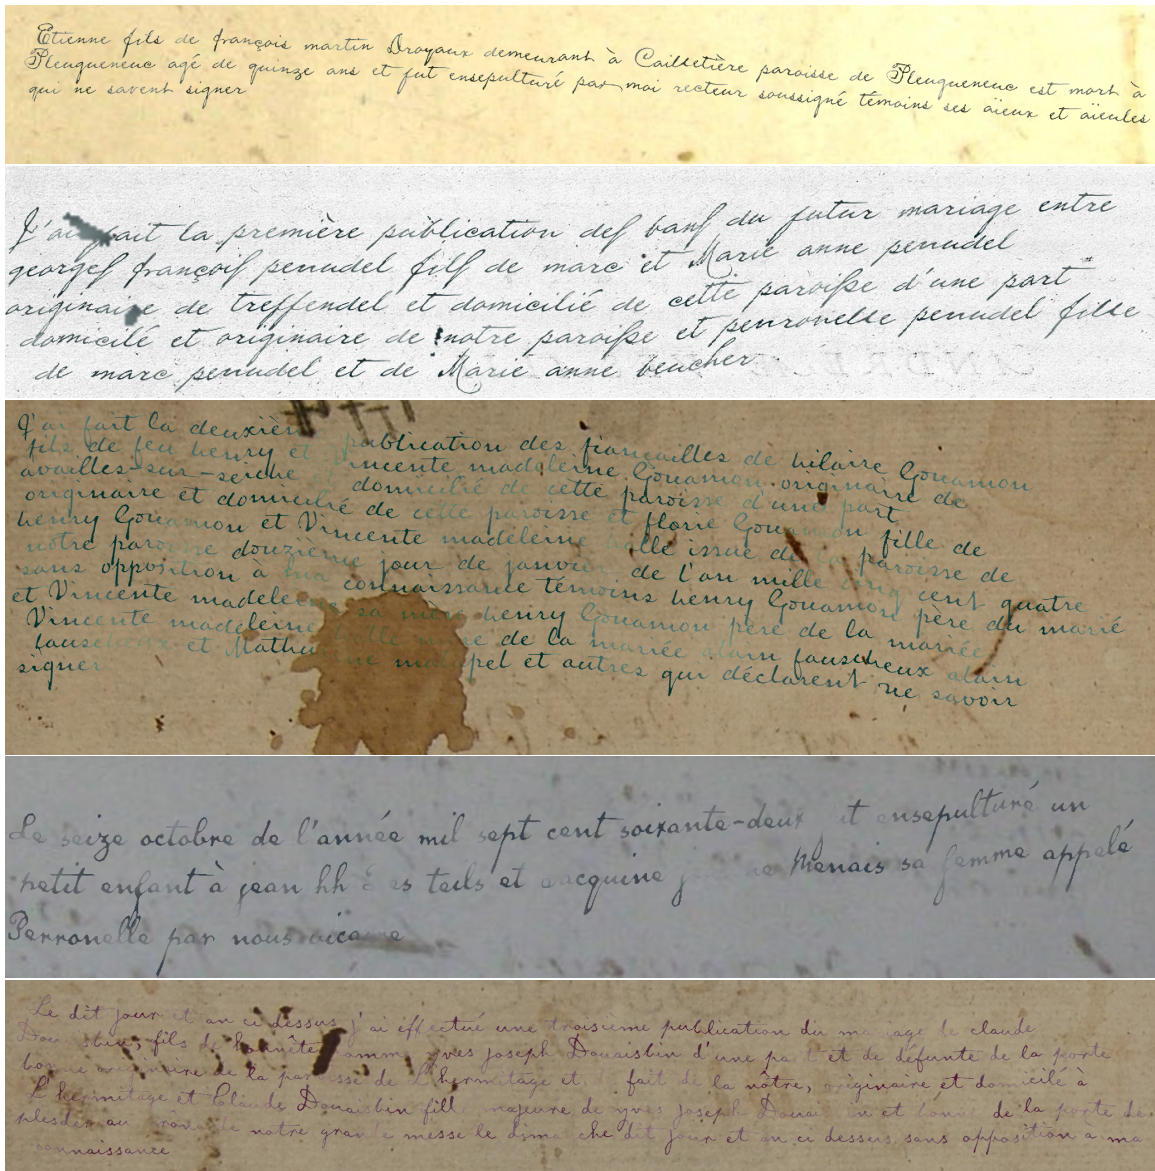 Etienne fils de françois martin Droyaux demeurant à Cailletière paroisse de Pleugueneuc est mort à
Pleugueneuc agé de quinze ans et fut ensepulturé par moi recteur soussigné témoins ses aïeux et aïeules
qui ne savent signer
J'ai fait la première publication des bans du futur mariage entre
georges françois penudel fils de marc et Marie anne penudel
originaire de treffendel et domicilié de cette paroisse d'une part
domicilé et originaire de notre paroisse et penronelle penudel fille
de marc penudel et de Marie anne beucher
J'ai fait la deuxième publication des fiançailles de hilaire Gouamon
fils de feu henry et vincente madeleine Gouamon originaire de
availles-sur-seiche domicilié de cette paroisse d'une part
originaire et domicilié de cette paroisse et florie Gouamon fille de
henry Gouamon et Vincente madeleine halle issue de paroisse de
notre paroisse douzième jour de janvier de l'an mille cinq cent quatre
sans opposition à ma connaissance témoins henry Gouamon père du marié
et Vincente madeleine sa mère henry Gouamon père de la mariée
Vincente madeleine halle mère de la mariée alain fauscheux alain
fauscheux et Mathurine malapel et autres qui déclarent ne savoir
signer
Le seize octobre de l'année mil sept cent soixante-deux ensepulturé un
petit enfant à jean hh teils et Menais sa femme appelé
Perronelle par nous vicaire
Le dit jour et an ci dessus j'ai effectué une troisième publication du mariage de claude
Douaisbin, fils de honnête homme yves joseph Douaisbin d'une part et de défunte de la porte
bonne originaire de la paroisse de L'hermitage et de fait de la nôtre, originaire et domicilé à
L'hermitage et Claude Douaisbin fille majeure de yves joseph Douaisbin et bonne de la porte de
plesder au prône de notre grande messe le dimanche dit jour et an ci dessus sans opposition à ma
connaissance